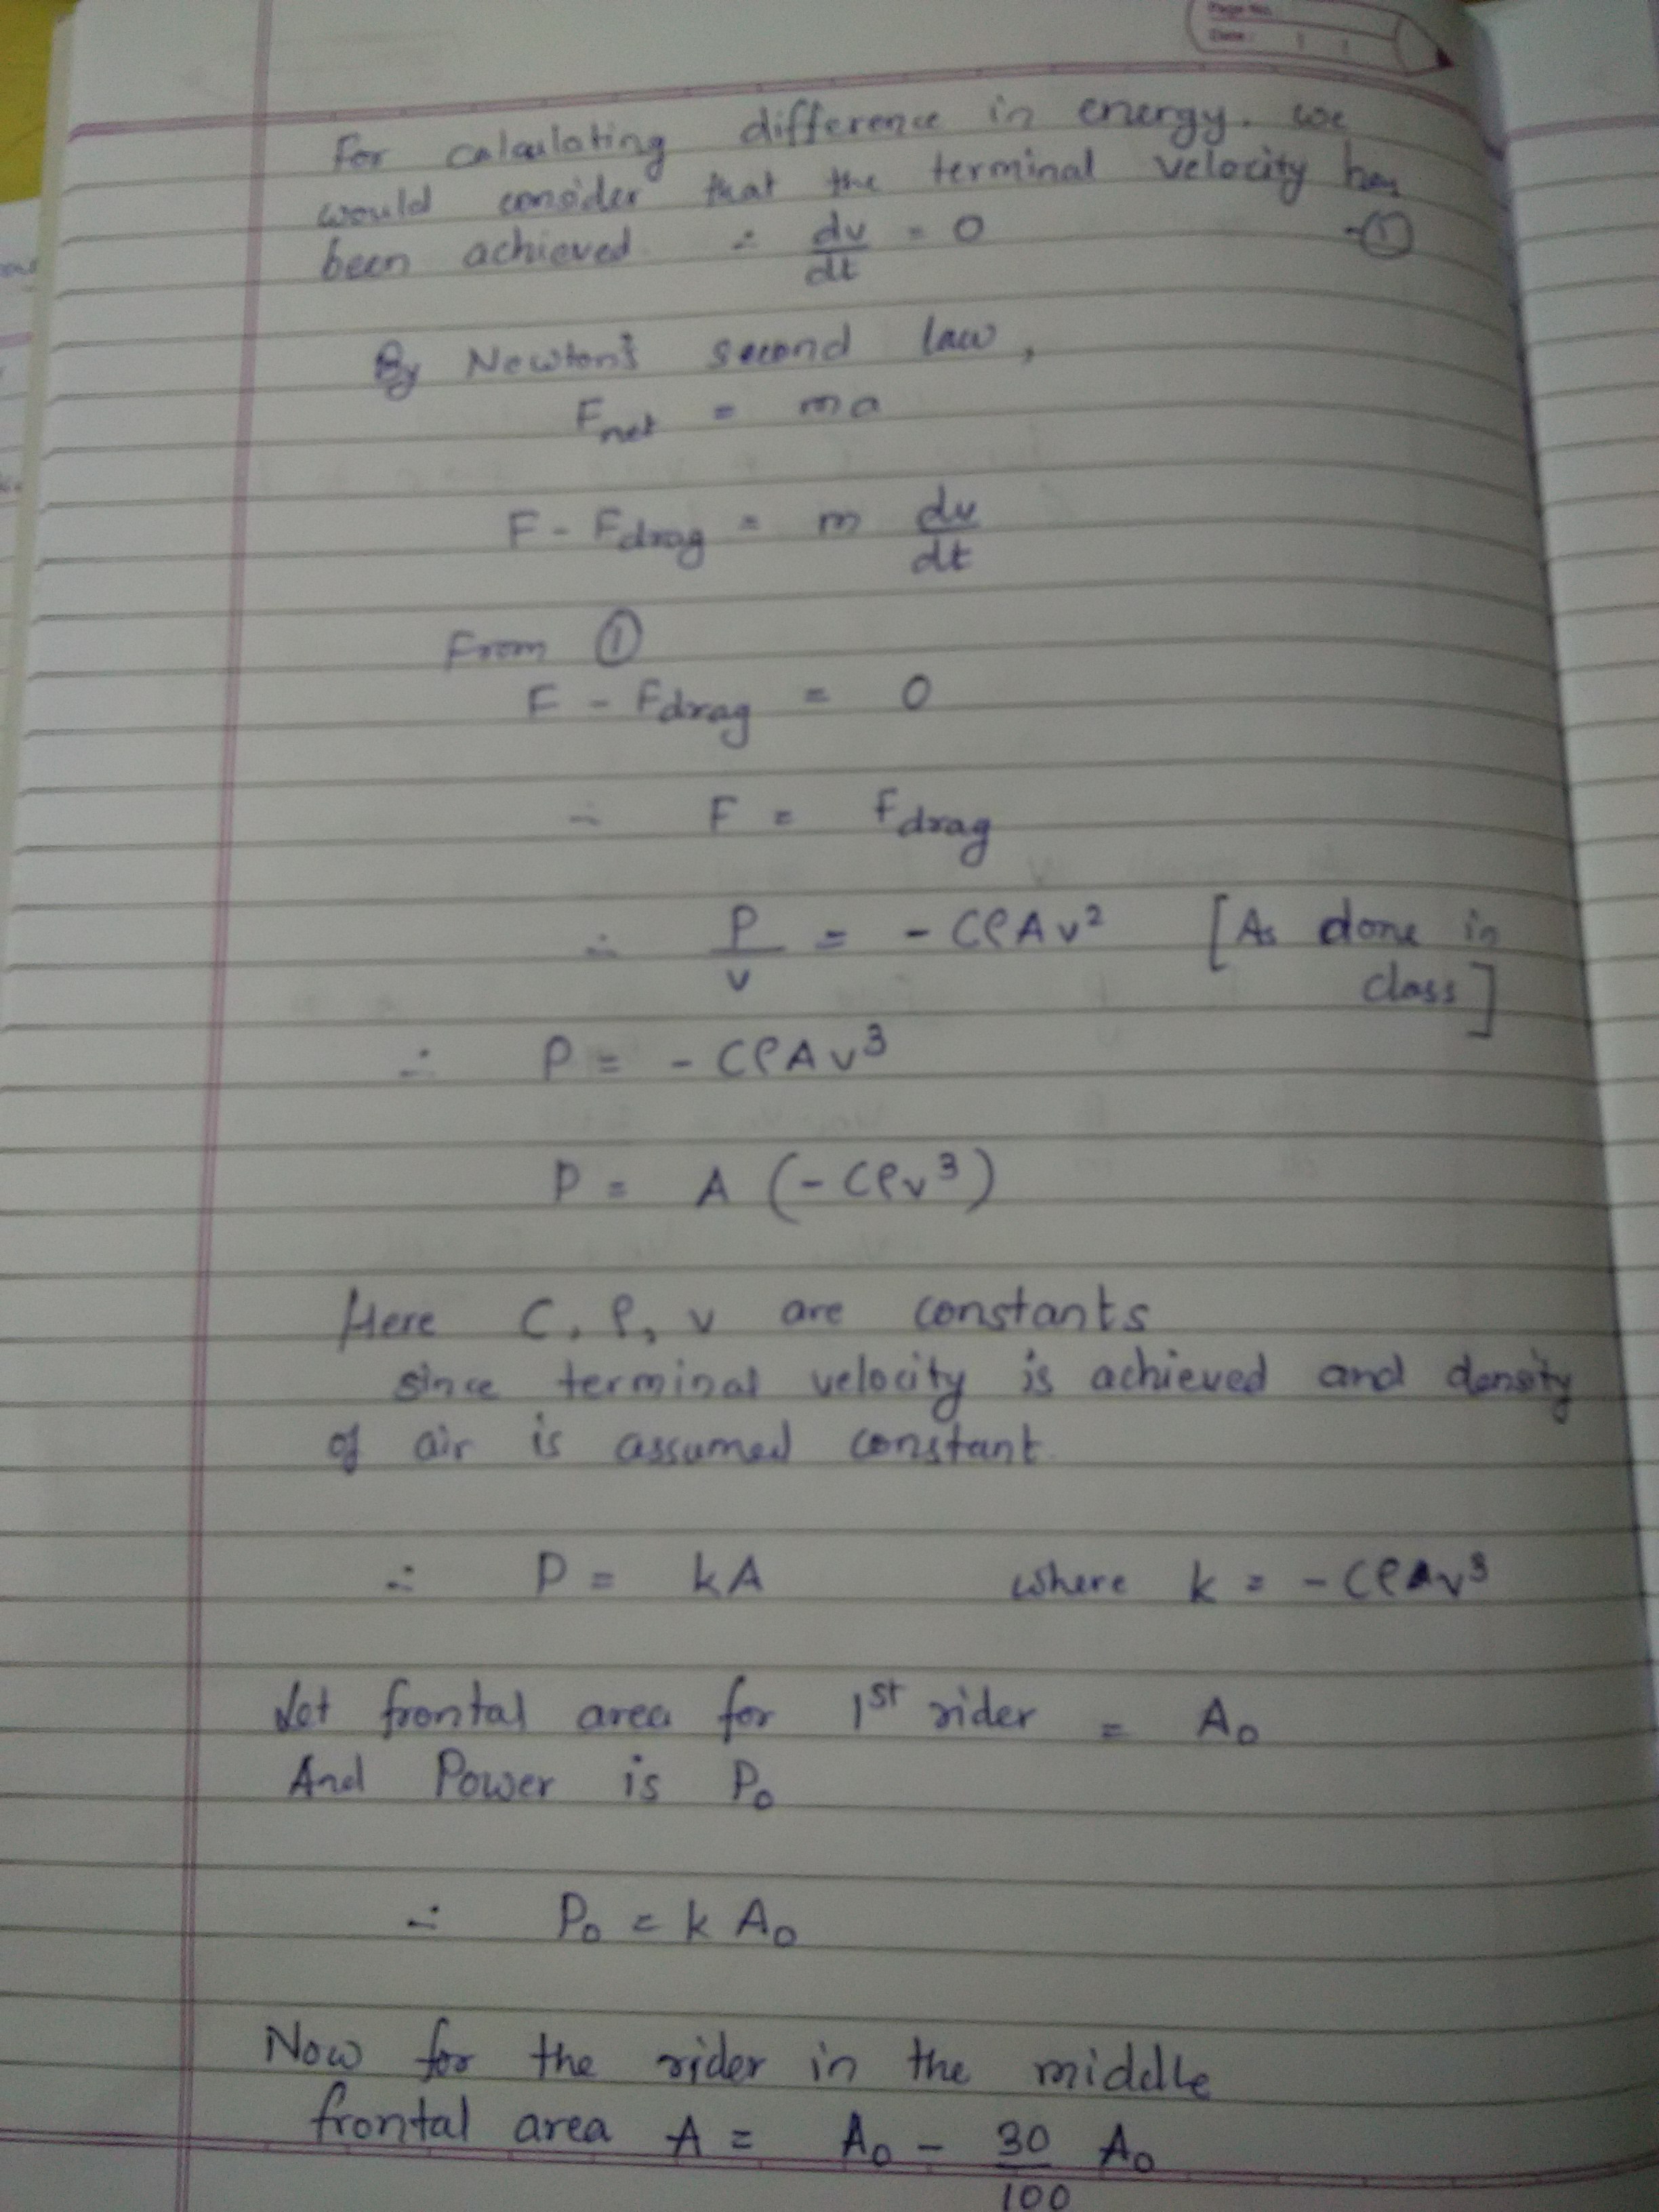 Page No.
Date:
For calculating difference in energy. we
would consider that the terminal velocity has
been achieved. ∴ dv/dt = 0 -①
By Newton's second law,
Fnet = ma
F - Fdrag = m dv/dt
From ①
F - Fdrag = 0
∴ F = Fdrag
∴ P/v = - CρAv² [As done in
class]
∴ P = - CρAv³
P = A (- Cρv³)
Here C, ρ, v are constants
since terminal velocity is achieved and density
of air is assumed constant.
∴ P = kA where k = - CρAv³
Let frontal area for 1st rider = A₀
And Power is P₀
∴ P₀ = k A₀
Now for the rider in the middle
frontal area A = A₀ - 30/100 A₀